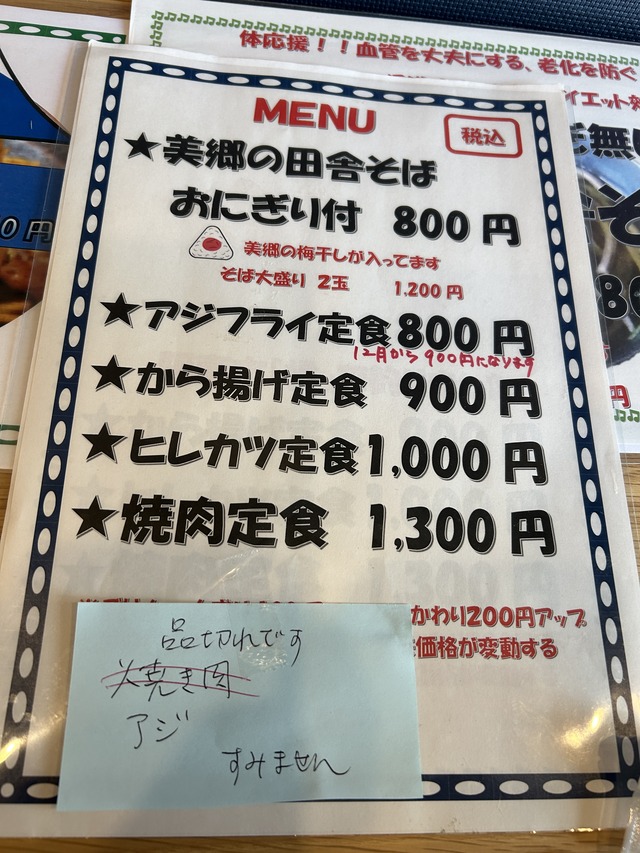 体応援！！血管を丈夫にする、老化を防ぐ
MENU
税込
★美郷の田舎そば
おにぎり付 800円
美郷の梅干しが入ってます
そば大盛り 2玉 1.200円
★アジフライ定食800円
12月から900円になります
★から揚げ定食 900円
★ヒレカツ定食1,000円
★焼肉定食 1,300円
かわり200円アップ
価格が変動する
品切れです
焼き肉
アジ
すみません